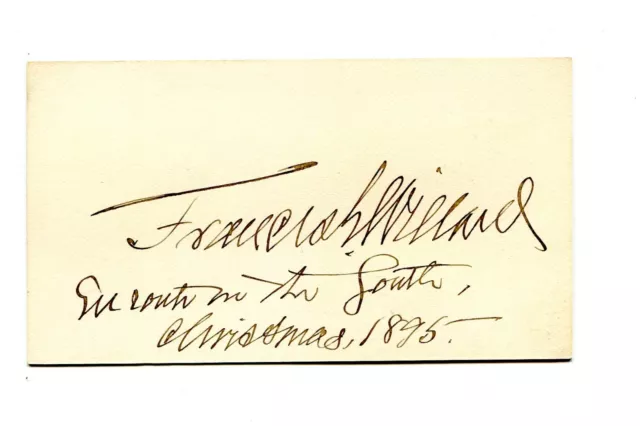 Frances E. Willard
En route in the South,
Christmas, 1895.